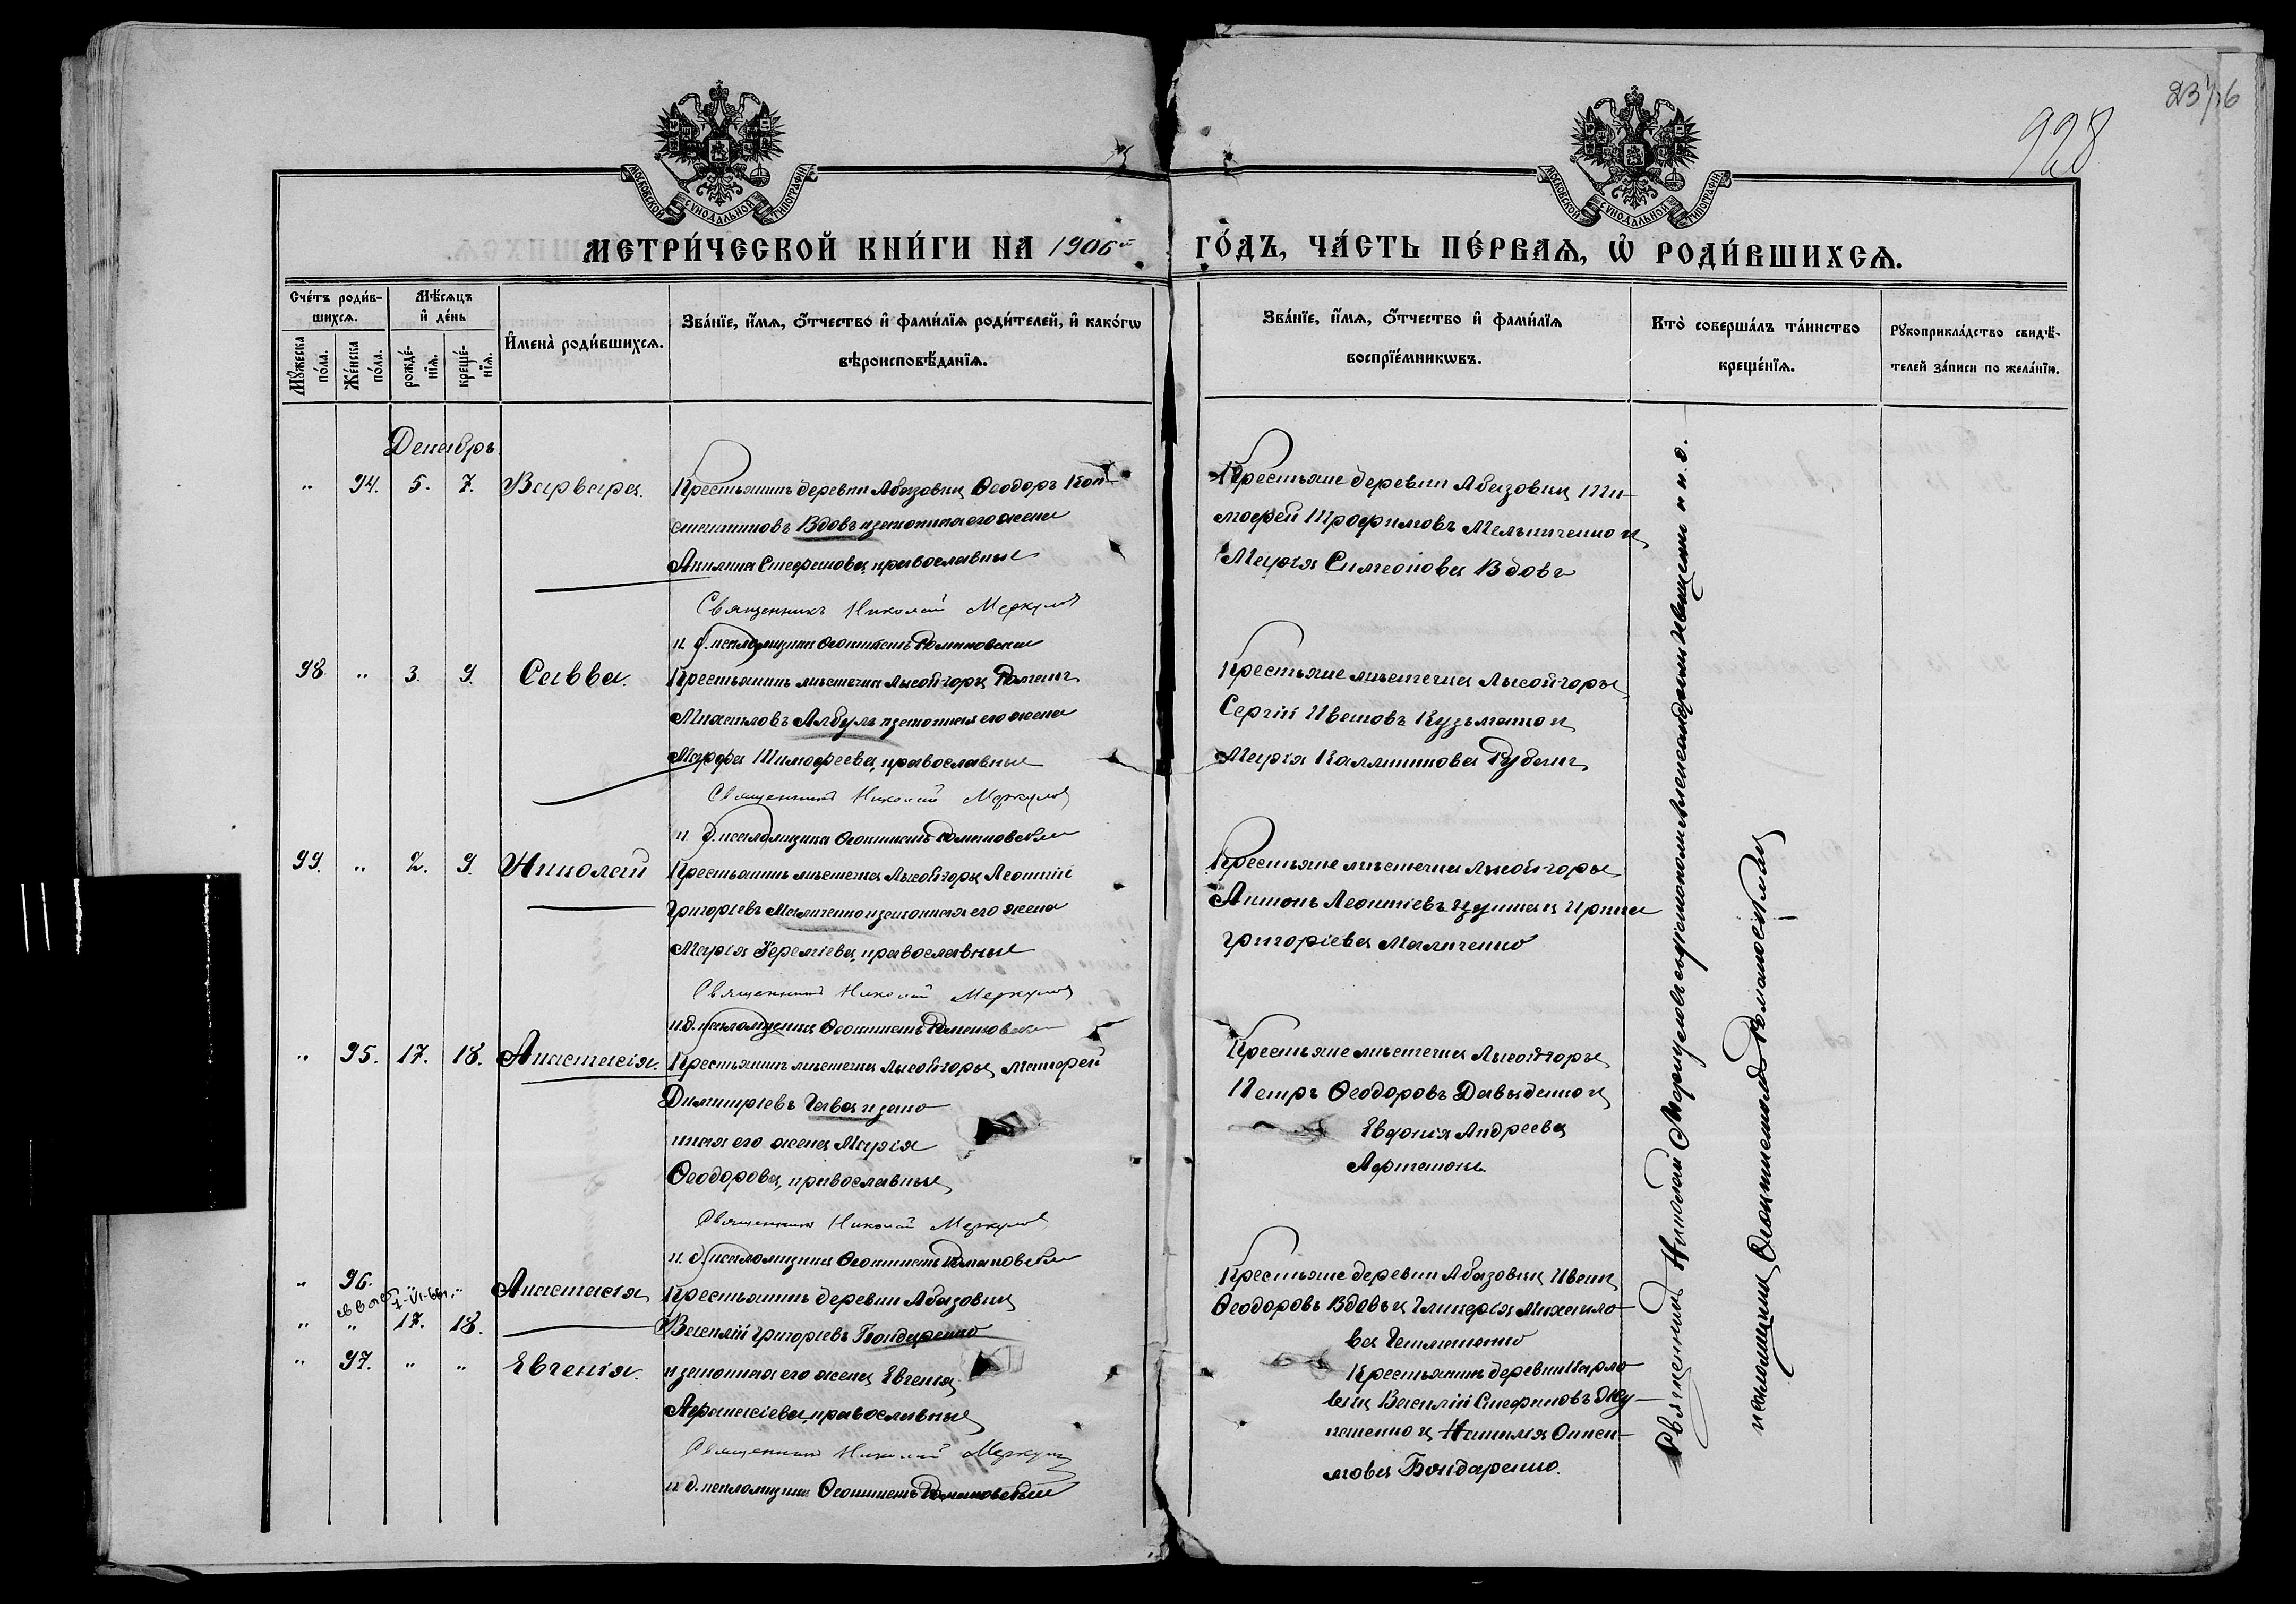 23/76
928
МОСКОВСКОЙ СѴНОДАЛЬНОЙ ТИПОГРАФІИ
МОСКОВСКОЙ СѴНОДАЛЬНОЙ ТИПОГРАФІИ
МЕТРИ́ЧЕСКОЙ КНИ́ГИ НА 1906й ГО́ДЪ, ЧА́СТЬ ПЕ́РВАѦ, Ѽ РОДИ́ВШИХСѦ.
Сче́тъ роди́в-
шихсѧ.
Мꙋ́жеска по́ла.
Же́нска по́ла.
Мѣ́сѧцъ
и҆ де́нь
рожде́-нїѧ.
креще́-нїѧ.
И҆мена̀ роди́вшихсѧ.
Зва́нїе, и҆́мѧ, ѻ҆́тчество и҆ фами́лїѧ роди́телей, и҆ како́гѡ
вѣроисповѣ́данїѧ.
Зва́нїе, и҆́мѧ, ѻ҆́тчество и҆ фами́лїѧ
воспрїе́мникѡвъ.
Кто̀ соверша́лъ та́инство
креще́нїѧ.
Рꙋкоприкла́дство свидѣ́-
телей за́писи по жела́нїю.
Декабрь.
" 94. 5. 7. Варвара. Крестьянинъ деревни Абазовки Ѳеодоръ Кон-
стантиновъ Вдовъ и законная его жена
Акилина Стефанова, православные
Священникъ Николай Меркулов
и. д. псаломщика Ѳеоктистъ Романовский
Крестьяне деревни Абазовки Ти-
мофей Трофимовъ Мельниченко и
Марія Симеонова Вдовъ
98 " 3. 9. Савва. Крестьянинъ мѣстечка Лысой-горы Роман
Михаиловъ Албулъ и законная его жена
Марфа Тимофеева, православные
Священникъ Николай Меркулов
и. д. псаломщика Ѳеоктистъ Романовский
Крестьяне мѣстечка Лысой-горы
Сергій Ивановъ Кузьменко и
Марія Каллиникова Рубанъ
99. " 2. 9. Николай Крестьянинъ мѣстечка Лысой-горы Леонтій
Григоріевъ Маличенко и законная его жена
Марія Іереміева, православные
Священникъ Николай Меркулов
и. д. псаломщика Ѳеоктистъ Романовский
Крестьяне мѣстечка Лысой-горы
Антонъ Леонтіевъ и Ирина
Григоріева Маличенко
" 95. 17. 18. Анастасія. Крестьянинъ мѣстечка Лысой-горы
Димитріевъ Гава и зако-
нная его жена Марія
Ѳеодорова, православные
Священникъ Николай Меркулов
и. д. псаломщика Ѳеоктистъ Романовский
Крестьяне мѣстечка Лысой-горы
Петръ Ѳеодоровъ Давыденко и
Евдокія Андреева
" 96. " " Анастасія Крестьянинъ деревни Абазовки
" " 17. 18. Василій Григоріевъ Бондаренко
" 97. " " Евгенія. и законная его жена Евгенія
Афанасіева, православные
Священникъ Николай Меркулов
и. д. псаломщика Ѳеоктистъ Романовский
Крестьяне деревни Абазовки Иванъ
Ѳеодоровъ Вдовъ и Гликерія Михаило-
ва
Крестьянинъ деревни Карло-
Василій Стефановъ
и Наталія Ониси-
мова Бондаренко.
Священникъ Николай Меркуловъ
псаломщика Ѳеоктистомъ Романовскимъ